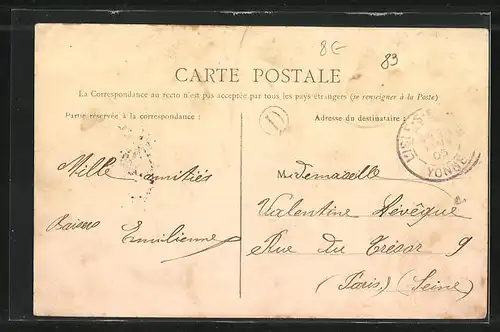 8€
83
CARTE POSTALE
La Correspondance au recto n'est pas acceptée par tous les pays étrangers (se renseigner à la Poste)
Partie réservée à la correspondance :
Adresse du destinataire :
Mille amitiés
Baisers Emilienne
Mademoiselle
Valentine Lévêque
Rue du Trésor 9
(Paris) (Seine)
YONNE